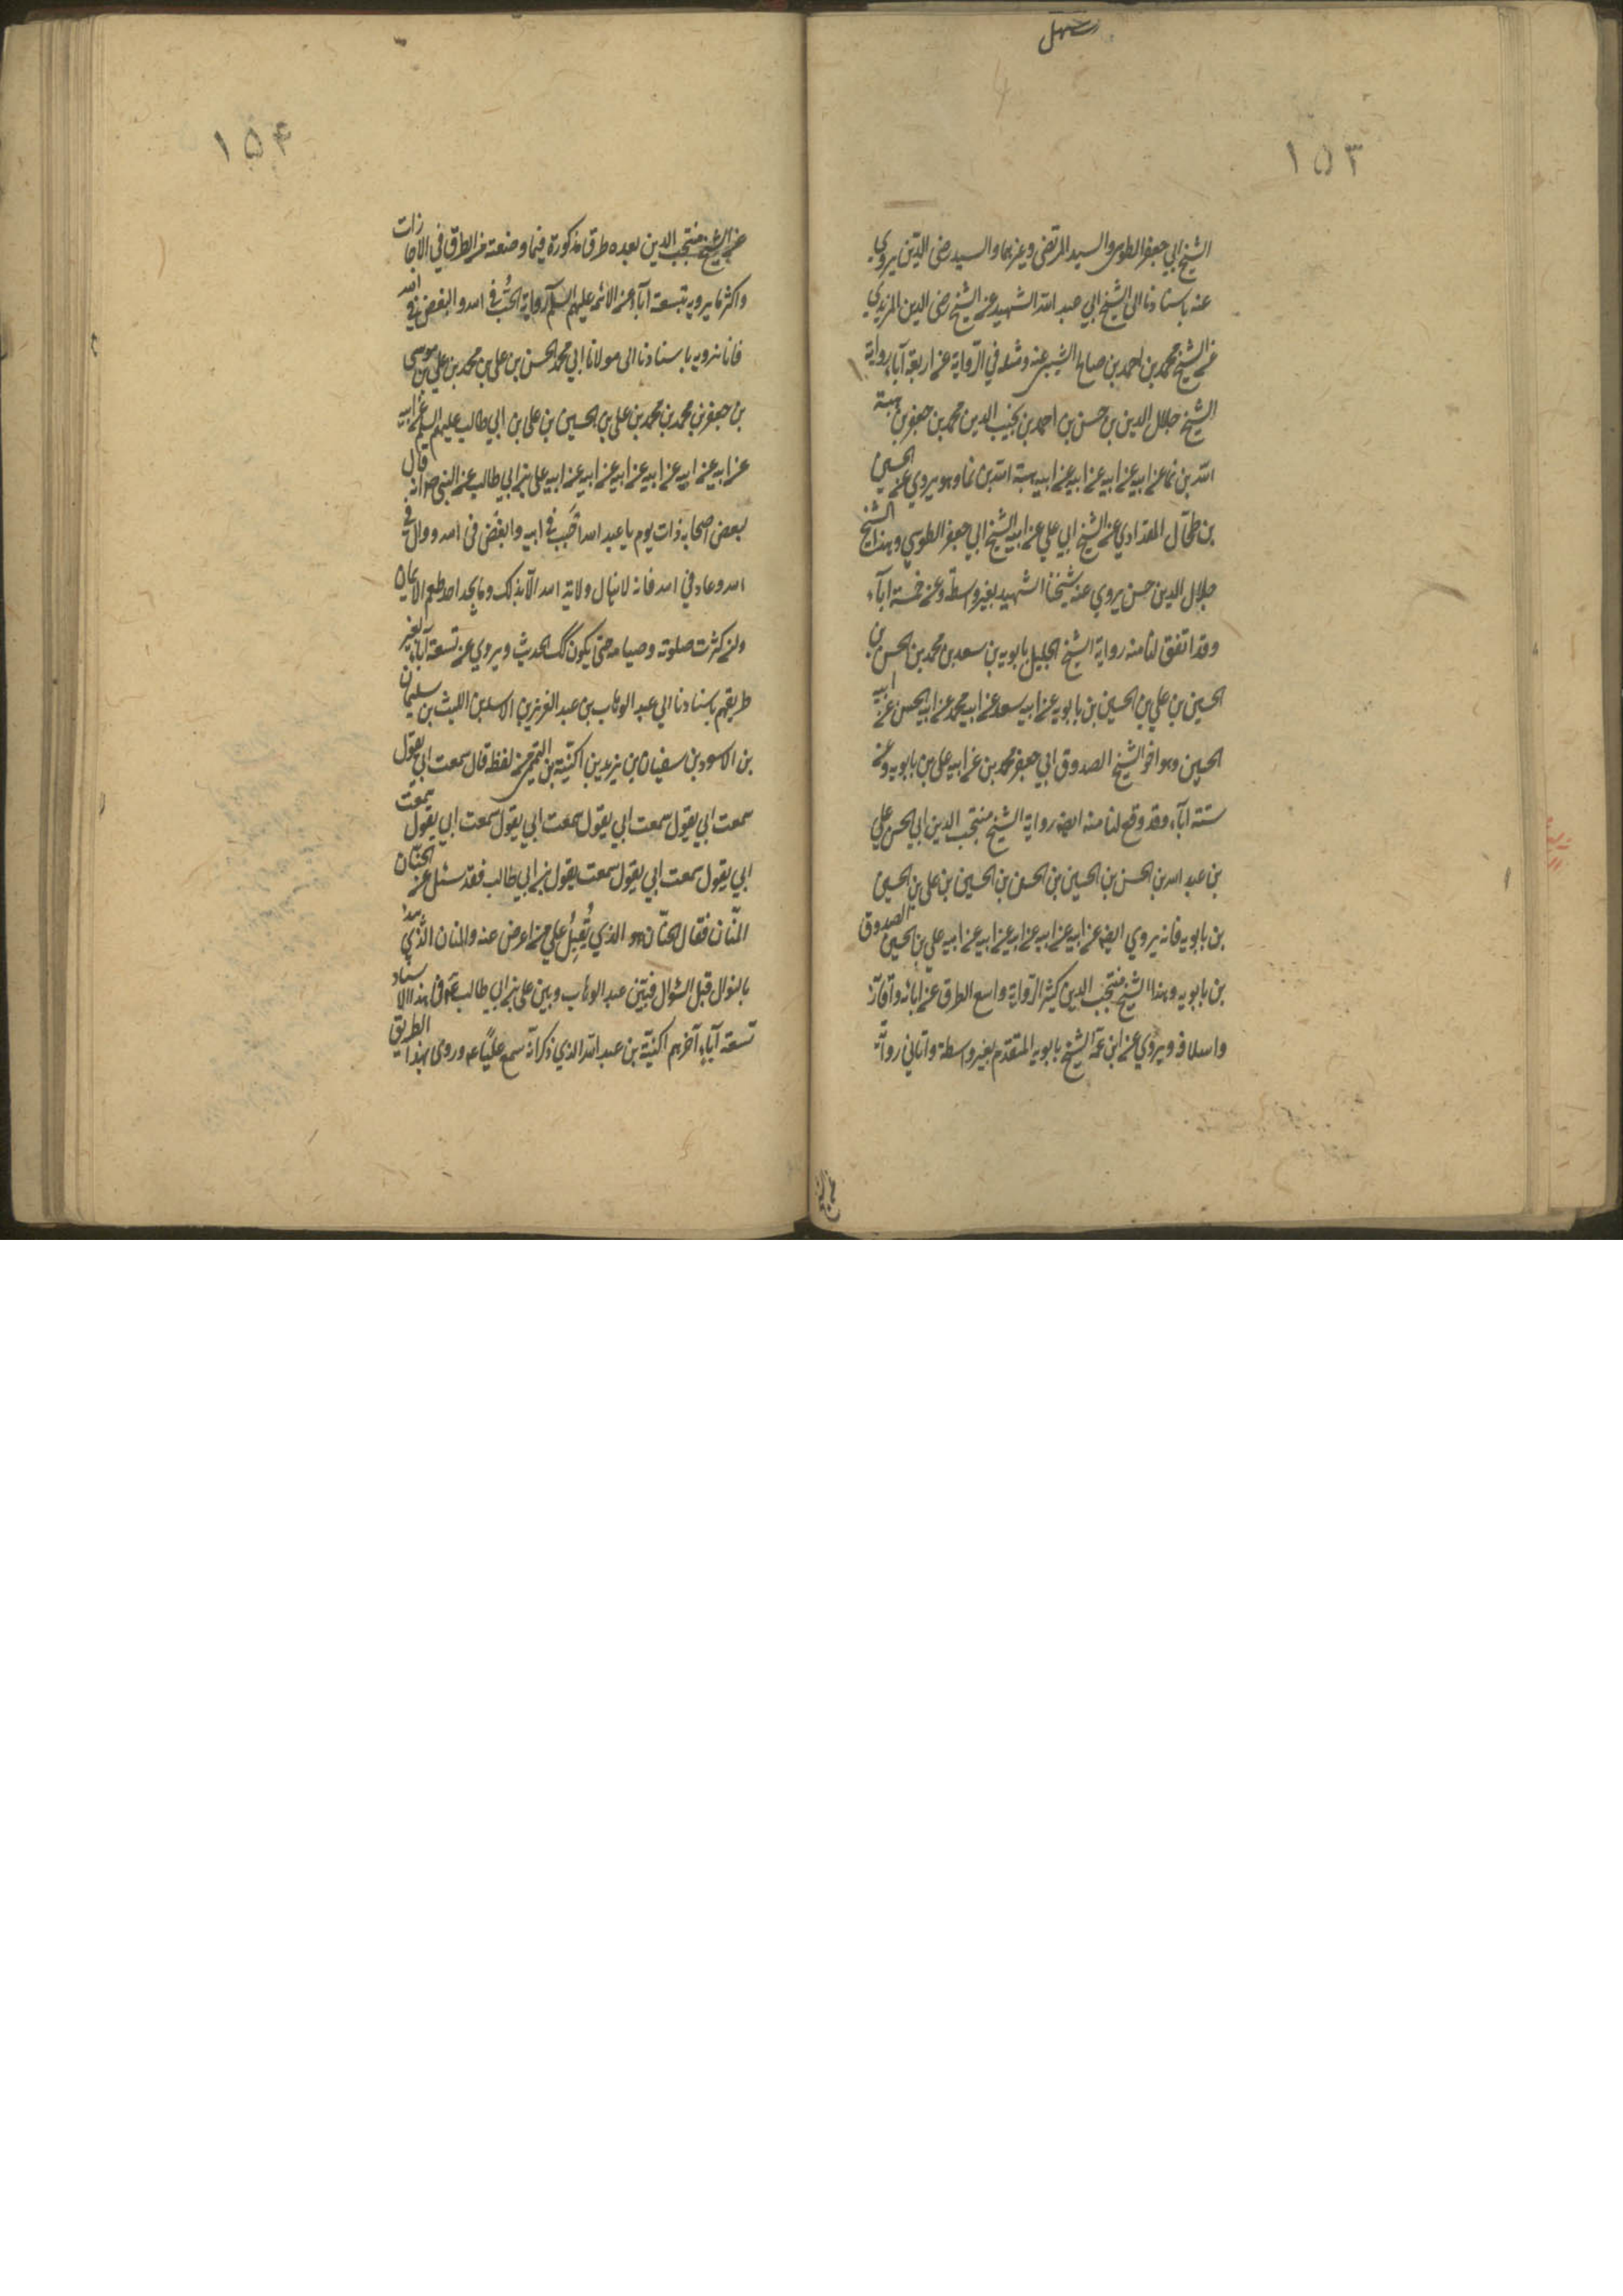 ١٥٣
الشيخ ابي جعفر الطوسي والسيد المرتضى وغيرهما والسيد رضى الدين يروي
عنه باسنادنا الى الشيخ ابي عبد الله الشهيد عن الشيخ رضى الدين المزيدي
عن الشيخ محمد بن احمد بن صالح السيبى عنه ومثله في الرواية عن اربعة آباء رواية
الشيخ جلال الدين بن حسن بن احمد بن نجيب الدين محمد بن جعفر بن هبة
الله بن نما عن ابيه عن ابيه عن ابيه عن ابيه هبة الله بن نما وهو يروي عن الحسين
بن طحال المقدادي عن الشيخ ابي علي عن ابيه الشيخ ابي جعفر الطوسي وبهذا الشيخ
جلال الدين حسن يروي عنه شيخنا الشهيد بغير واسطة وعن خمسة آباء
وقد اتفق لنا منه رواية الشيخ الجليل بابويه بن سعد بن محمد بن الحسن بن
الحسين بن علي بن الحسين بن بابويه عن ابيه سعد عن ابيه محمد عن ابيه الحسن عن ابيه
الحسين وهو اخو الشيخ الصدوق ابي جعفر محمد بن عن ابيه علي بن بابويه وعن
ستة آباء وقد وقع لنا منه ايضا رواية الشيخ منتجب الدين ابي الحسن علي
بن عبد الله بن الحسن بن الحسين بن الحسن بن الحسين بن علي بن الحسين
بن بابويه فانه يروي ايضا عن ابيه عن ابيه عن ابيه عن ابيه عن ابيه علي بن الحسين الصدوق
بن بابويه وهذا الشيخ منتجب الدين كثير الرواية واسع الطرق عن آبائه واقاربه
واسلافه ويروي عن ابن عمه الشيخ بابويه المتقدم بغير واسطة وانا لي رواية
١٥۴
عن الشيخ منتجب الدين بعده طرق مذكورة فيما وضعته من الطرق في الاجازات
واكثر ما يرويه بتسعة آباء عن الائمه عليهم السلم رواية الحب في الله والبغض في الله
فانا نرويه باسنادنا الى مولانا ابي محمد الحسن بن علي بن محمد بن علي بن موسى
بن جعفر بن محمد بن محمد بن علي بن الحسين بن علي بن ابي طالب عليهم السلم عن ابيه
عن ابيه عن ابيه عن ابيه عن ابيه عن ابيه عن ابيه علي بن ابي طالب عن النبي ص انه قال
لبعض اصحابه ذات يوم يا عبد الله احبب في الله وابغض في الله ووال في
الله وعاد في الله فانه لا ينال ولاية الله الا بذلك وما يجد احد طعم الايمان
وان كثرت صلوته وصيامه حتى يكون كك الحديث ويروي عن تسعة آباء لغير
طريقهم باسنادنا الى عبد الوهاب بن عبد العزيز بن الاسد بن الليث بن سليمان
بن الاسود بن سفيان بن يزيد بن اكنية بن التميمى من لفظه قال سمعت ابي يقول
سمعت ابي يقول سمعت ابي يقول سمعت ابي يقول سمعت ابي يقول سمعت
ابي يقول سمعت ابي يقول سمعت يقول بن ابي طالب فقد سئل عن الحنان
المنان فقال الحنان هو الذي يُقبِلُ على من اعرض عنه والمنان الذي يبدأ
بالنوال قبل السؤال فبين عبد الوهاب وبين علي بن ابي طالب ع في هذا الاسناد
تسعة آباء آخرهم اكنية بن عبد الله الذي ذكر انه سمع علياً ع وروى بهذا الطريق